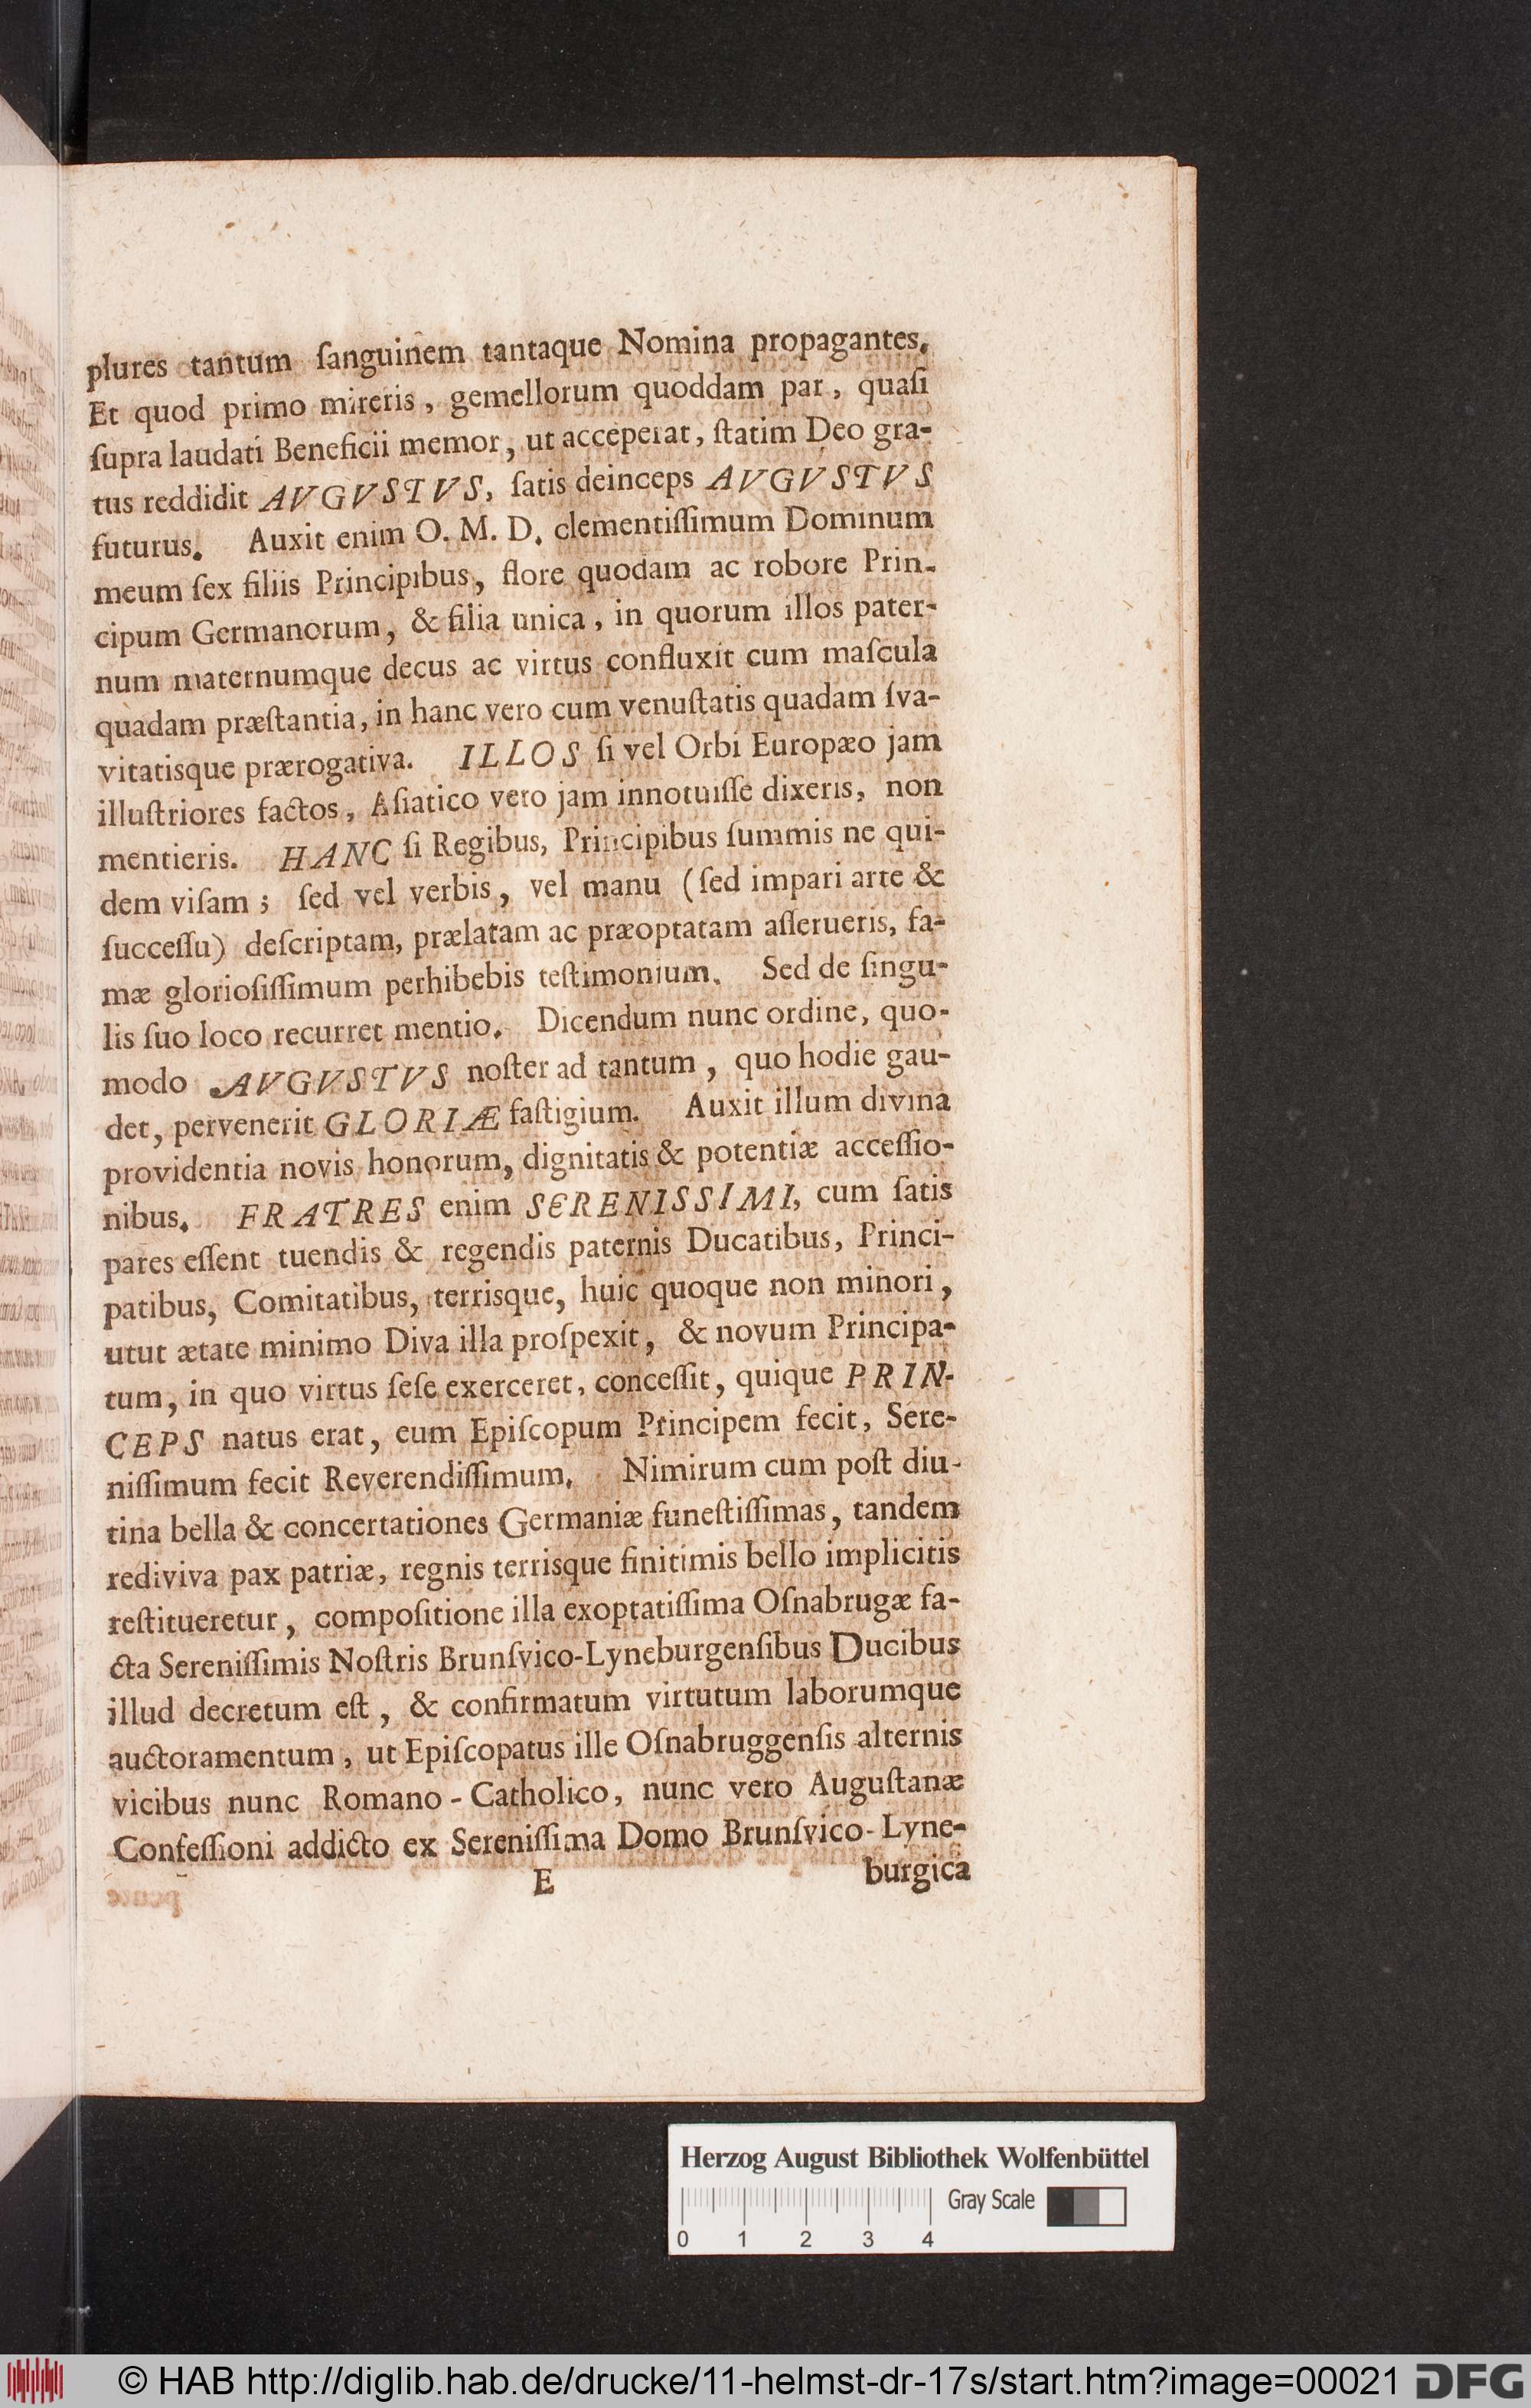 plures tantum ſanguinem tantaque Nomina propagantes.
Et quod primo mireris, gemellorum quoddam par, quaſi
ſupra laudati Beneficii memor, ut acceperat, ſtatim Deo gra-
tus reddidit AVGVSTVS, ſatis deinceps AVGVSTVS
futurus. Auxit enim O. M. D. clementiſſimum Dominum
meum ſex filiis Principibus, flore quodam ac robore Prin-
cipum Germanorum, & filia unica, in quorum illos pater-
num maternumque decus ac virtus confluxit cum maſcula
quadam præſtantia, in hanc vero cum venuſtatis quadam ſva-
vitatisque prærogativa. ILLOS ſi vel Orbi Europæo jam
illuſtriores factos, Aſiatico vero jam innotuiſſe dixeris, non
mentieris. HANC ſi Regibus, Principibus ſummis ne qui-
dem viſam; ſed vel verbis, vel manu (ſed impari arte &
ſucceſſu) deſcriptam, prælatam ac præoptatam aſſerueris, fa-
mæ glorioſiſſimum perhibebis teſtimonium. Sed de ſingu-
lis ſuo loco recurret mentio. Dicendum nunc ordine, quo-
modo AVGVSTVS noſter ad tantum, quo hodie gau-
det, pervenerit GLORIÆ faſtigium. Auxit illum divina
providentia novis honorum, dignitatis & potentiæ acceſſio-
nibus. FRATRES enim SERENISSIMI, cum ſatis
pares eſſent tuendis & regendis paternis Ducatibus, Princi-
patibus, Comitatibus, terrisque, huic quoque non minori,
utut ætate minimo Diva illa proſpexit, & novum Principa-
tum, in quo virtus ſeſe exerceret, conceſſit, quique PRIN-
CEPS natus erat, eum Epiſcopum Principem fecit, Sere-
niſſimum fecit Reverendiſſimum. Nimirum cum poſt diu-
tina bella & concertationes Germaniæ funeſtiſſimas, tandem
rediviva pax patriæ, regnis terrisque finitimis bello implicitis
reſtitueretur, compoſitione illa exoptatiſſima Oſnabrugæ fa-
cta Sereniſſimis Noſtris Brunſvico-Lyneburgenſibus Ducibus
illud decretum eſt, & confirmatum virtutum laborumque
auctoramentum, ut Epiſcopatus ille Oſnabruggenſis alternis
vicibus nunc Romano-Catholico, nunc vero Auguſtanæ
Confeſſioni addicto ex Sereniſſima Domo Brunſvico-Lyne-
E burgica
Herzog August Bibliothek Wolfenbüttel
Gray Scale
0 1 2 3 4
© HAB http://diglib.hab.de/drucke/11-helmst-dr-17s/start.htm?image=00021 DFG